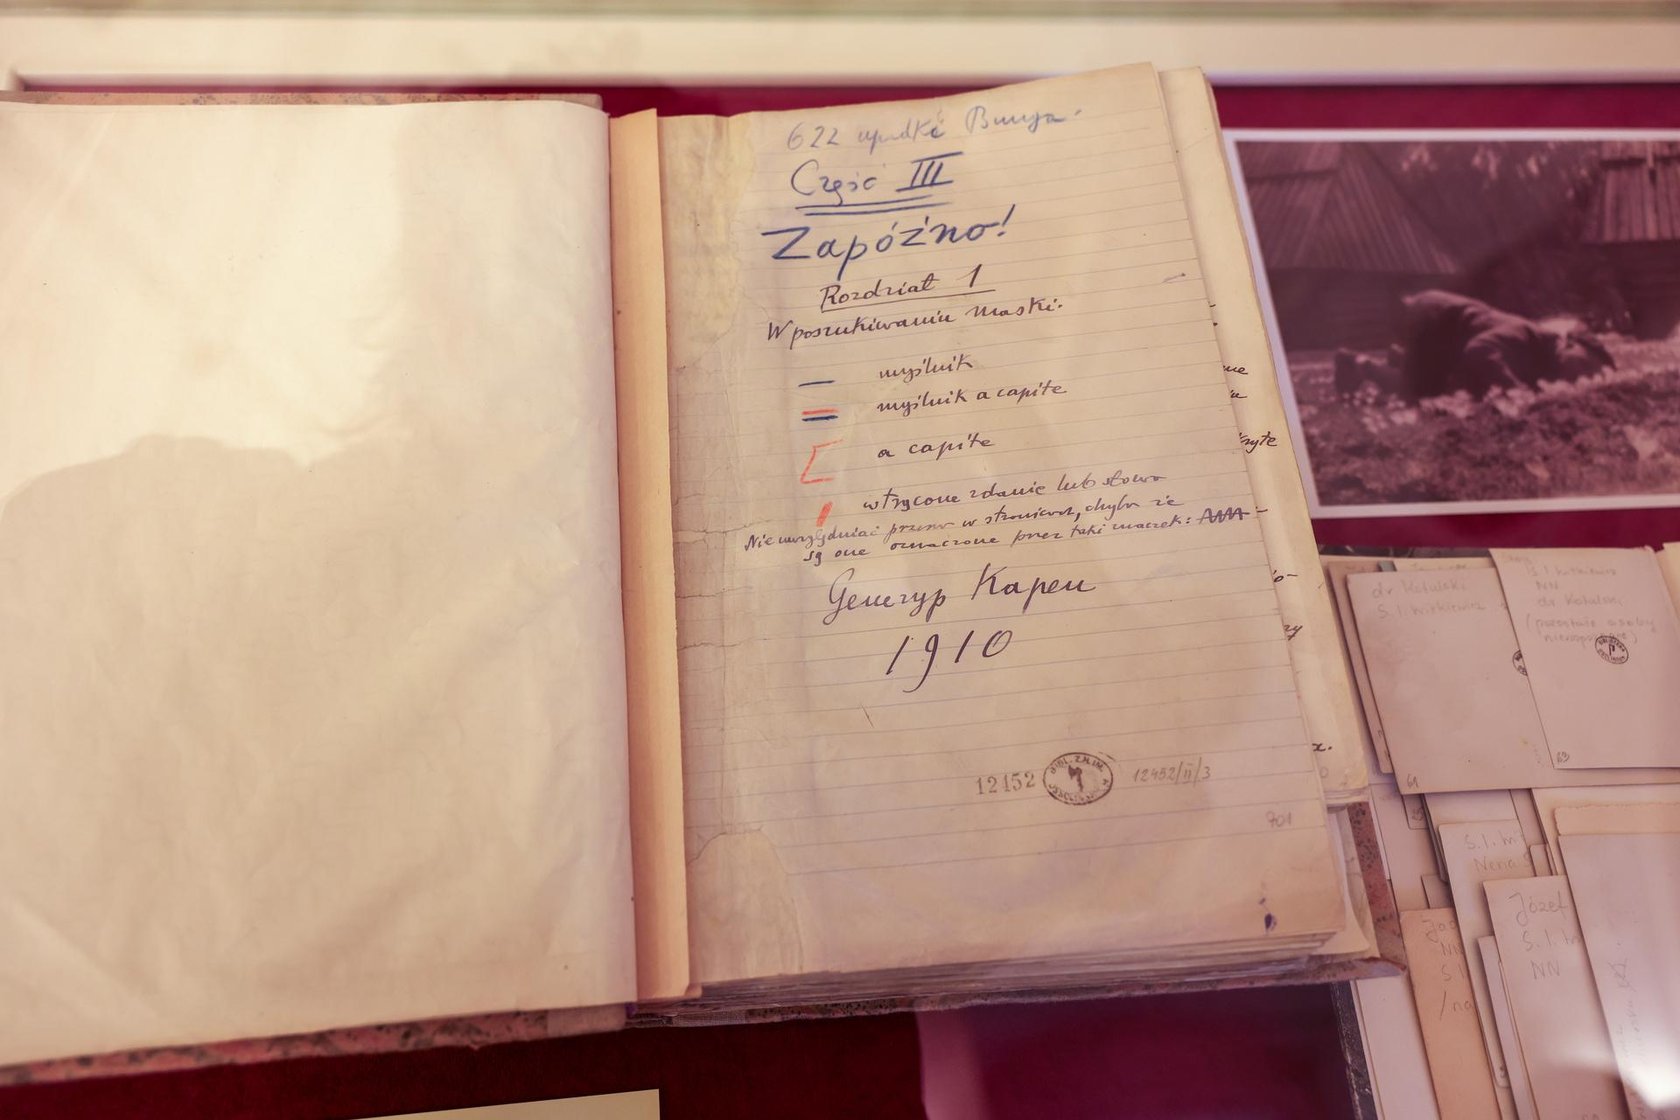 622 upadki Bunga.
Część III
Zapóźno!
Rozdział 1
W poszukiwaniu maski.
myślnik
myślnik a capite
a capite
wtrącone zdanie lub słowo
Nie uwzględniać przerw w stronicach, chyba że
są one oznaczone przez taki znaczek:
Genezyp Kapen
1910
12452
12452/II/3
901
żyte
zy
x.
dr Kotulski
S. I. Witkiewicz
64
S. I. Witkiewicz
NN
dr Kotulski
(pozostałe osoby
63
S. I. Wi
Nena S
Józef
S. I. W
NN